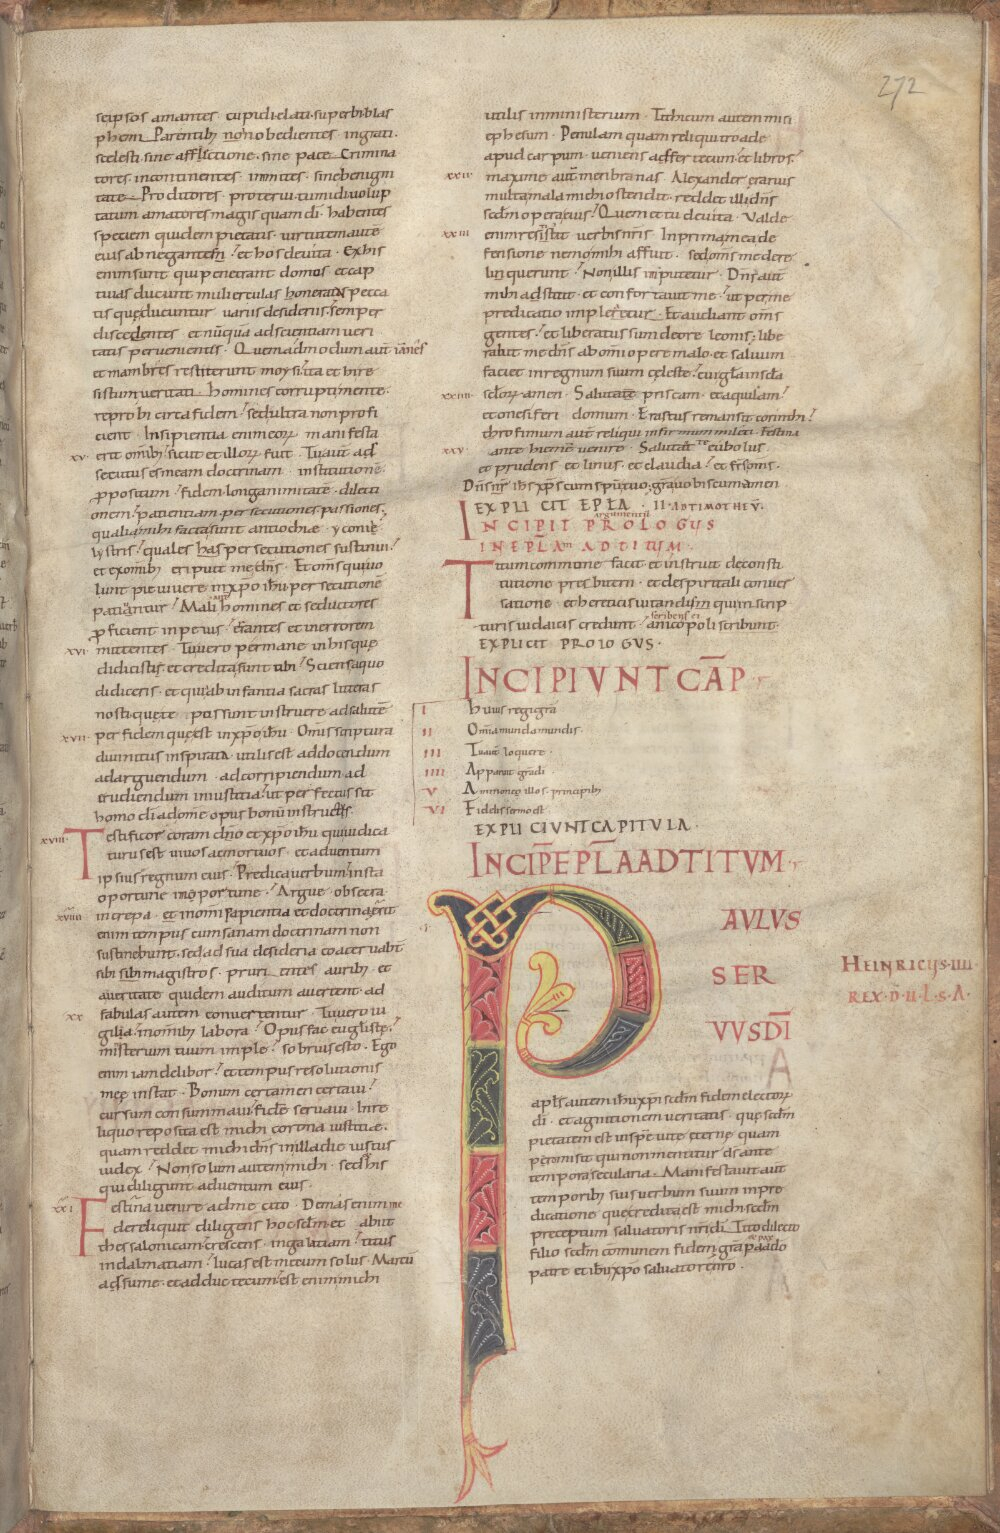 272
seipsos amantes · cupidi · elati · superbi · blas
phemi · Parentibꝫ non obedientes · ingrati ·
scelesti · sine affectione · sine pace · Crimina
tores · incontinentes · inmites · sine benigni
tate · Proditores · protervi · tumidi · volup
tatum amatores magis quam dī · habentes
speciem quidem pietatis · virtutem aute
eius abnegantes · et hos devita · Ex his
enim sunt qui penetrant domos et cap
tivas ducunt mulierculas honeratas pecca
tis quę ducuntur variis desideriis · semper
discentes et nūquā ad scientiam veri
tatis pervenientes · Quemadmodum aut iānes
et mambres restiterunt moysi · ita et hi re
sistunt veritati · Homines corrupti mente ·
reprobi circa fidem · sed ultra non profi
cient · Insipientia enim eoꝝ manifesta
xv · erit omībꝫ sicut et illoꝝ fuit · Tu aut ad
secutus es meam doctrinam · institutionē ·
propositum · fidem · longanimitatē · dilecti
onem · patientiam · persecutiones · passiones ·
qualia mihi facta sunt antiochiae · yconię
lystris · quales has persecutiones sustinui ·
et ex omībꝫ eripuit me dns · Et oms qui vo
lunt pie vivere in xpo ihu persecutione
patiantur · Mali aut homines et seductores
proficient in peius · errantes et in errorem
xvi · mittentes · Tu vero permane in his quę
didicisti · et credita sunt tibi · Sciens a quo
didiceris · et quia ab infantia sacras litteras
nosti quę te possunt instruere ad salutē
xvii · per fidem quę est in xpo ihu · Omis scriptura
divinitus inspirata utilis est ad docendum
ad arguendum · ad corripiendum ad
erudiendum in iustitia · ut perfectus sit
homo dī ad omē opus bonū instructus ·
xviii · Testificor coram dno et xpo ihu qui iudica
turus est vivos ac mortuos · et adventum
ipsius regnum eius · Predica verbum insta
oportune inoportune · Argue · obsecra
xviiii increpa · et in omī sapientia et doctrina · Erit
enim tempus cum sanam doctrinam non
sustinebunt · sed ad sua desideria coacervabt
sibi magistros · prurientes auribꝫ · et
a veritate quidem auditum avertent · ad
xx fabulas autem convertentur · Tu vero vi
gila · in omībꝫ labora · Opus fac euglistę ·
misterium tuum imple · sobrius esto · Ego
enim iam delibor · et tempus resolutionis
meę instat · Bonum certamen certavi ·
cursum consummavi · fidē servavi · In re
liquo reposita est michi corona iustitiae ·
quam reddet michi dns in illa die iustus
iudex · Non solum autem michi · sed et his
qui diligunt adventum eius ·
xxi Festina venire ad me cito · Demas enim me
dereliquit diligens hoc sclm et abiit
thessalonicam · crescens in galatiam · titus
in dalmatiam · lucas est mecum solus · Marcū
adsume · et adduc tecum · est enim michi
utilis in ministerium · Tithicum autem misi
ephesum · Penulam quam reliqui troade
apud carpum · veniens adfer tecum · et libros ·
xxii · maxime aut membranas · Alexander erarius
multa mala michi ostendit · reddet illi dns
scdm opera eius · Quem et tu devita · Valde
xxiii enim resistit verbis nris · In prima mea de
fensione nemo mihi affuit · sed oms me dere
linquerunt · Non illis inputetur · Dns aut
mihi adstitit · et confortavit me · ut per me
predicatio impleretur · Et audiant oms
gentes · et liberatus sum de ore leonis · libe
rabit me dns ab omi opere malo · et salvum
faciet in regnum suum cęleste · cui gla in scla
xxiiii · scloꝝ · amen · Salutate priscam · et aquilam
et onesiferi domum · Erastus remansit corinthi ·
throfimum aut reliqui infirmum mileti · Festina
xxv · ante hiemē venire · Salutat te eubolus
et prudens et linus · et claudia · et frs oms ·
Dns nr ihs xps cum spu tuo · gra vobiscum amen
EXPLICIT EPLA · II · AD TIMOTHEV̄ ·
argumenti
INCIPIT PROLOGUS
IN EPLAM AD TITUM ·
Titum commone facit et instruit de consti
tutione presbiterii · et de spiritali conver
satione · et hereticis vitandis qui in scrip
scribens ei
turis iudaicis credunt · a nicopoli scribunt ·
EXPLICIT PROLOGUS ·
INCIPIUNT CAP ·
I Huius rei gra
II Omia munda mundis ·
III Tu aut loquere ·
IIII Apparuit gra dī ·
V Ammone illos · principibꝫ
VI Fidelis sermo est ·
EXPLICIUNT CAPITULA ·
INCIP EPLA AD TITUM ·
PAULUS
SER
VVS DĪ
HEINRICUS · IIII ·
REX · D · II · L · S · A ·
apls autem ihu xpi scdm fidem electoꝝ
dī · et agnitionem veritatis · quę scdm
pietatem est in spe vitę eternę quam
promisit qui non mentitur ds ante
tempora secularia · Manifestavit aut
temporibꝫ suis verbum suum in pre
dicatione quę credita est michi scdm
preceptum salvatoris nri dī · Tito dilecto
filio scdm comunem fidem · gra et pax a do
patre et ihu xpo salvatore nro ·